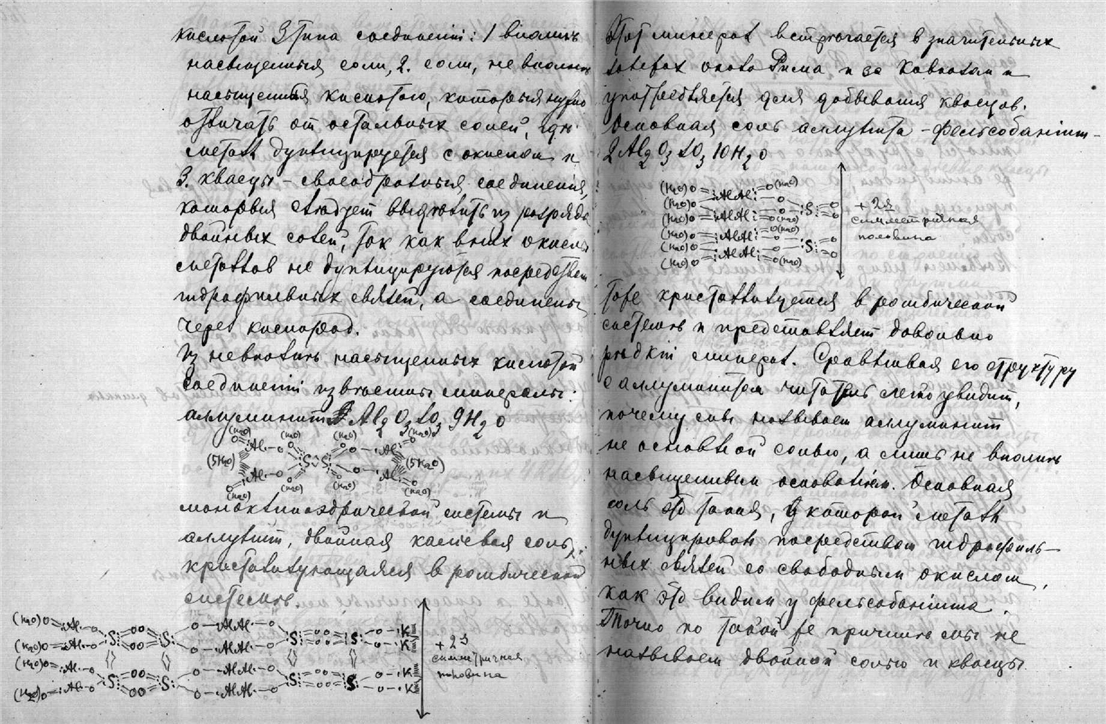 кислотой 3 типа соединенiй: 1 вполнѣ
насыщенныя соли, 2. соли, не вполнѣ
насыщенныя кислотою, которыя нужно
отличать от остальных солей, гдѣ
металл дуплицируется с окислом и
3. квасцы – своеобразныя соединенiя,
которыя следует выделить из разряда
двойных солей, так как в них окислы
металлов не дуплицируются посредством
гидрофильных связей, а соединены
через кислород.
Из невполнѣ насыщенных кислотой
соединенiй извѣстны минералы:
алуминит Al2O3SO3 9H2O
(H2O) (H2O) (H2O) (H2O)
(5H2O) Al O S S O Al (5H2O)
Al O O Al
(H2O) (H2O) (H2O) (H2O)
моноклиноэдрической системы и
аллунит, двойная калiевая соль,
кристаллизующаяся в ромбической
системѣ.
(H2O)O Al O S OO S O AlAl O S OO S O K
(H2O)O Al O O AlAl O O K
(H2O)O Al O O AlAl O O K
(H2O)O Al O S OO S O AlAl O S OO S O K
+ 2я
симметричная
половина
Этот минерал встрѣчается в значительных
около Рима и за Кавказом и
употребляется для добыванiя квасцов.
Основная соль аллунита – фельсобанiит –
2Al2O3SO3 10H2O
(H2O)O AlAl O(H2O)
(H2O)O O S O
(H2O)O AlAl O O
(H2O)O O(H2O)
(H2O)O AlAl O(H2O)
(H2O)O O S O
(H2O)O AlAl O O
(H2O)O O(H2O)
+ 2я
симметричная
половина
тоже кристаллизуется в ромбической
системѣ и представляет довольно
рѣдкiй минерал. Сравнивая его структуру
с аллуминитом читатель легко увидит,
почему мы называем аллуминит
не основной солью, а лишь не вполнѣ
насыщенным основанiем. Основная
соль это такая, у которой металл
дуплицирован посредством гидрофиль–
ных связей со свободным окислом,
как это видим у фельсобанiита.
Точно по такой же причинѣ мы не
называем двойной солью и квасцы